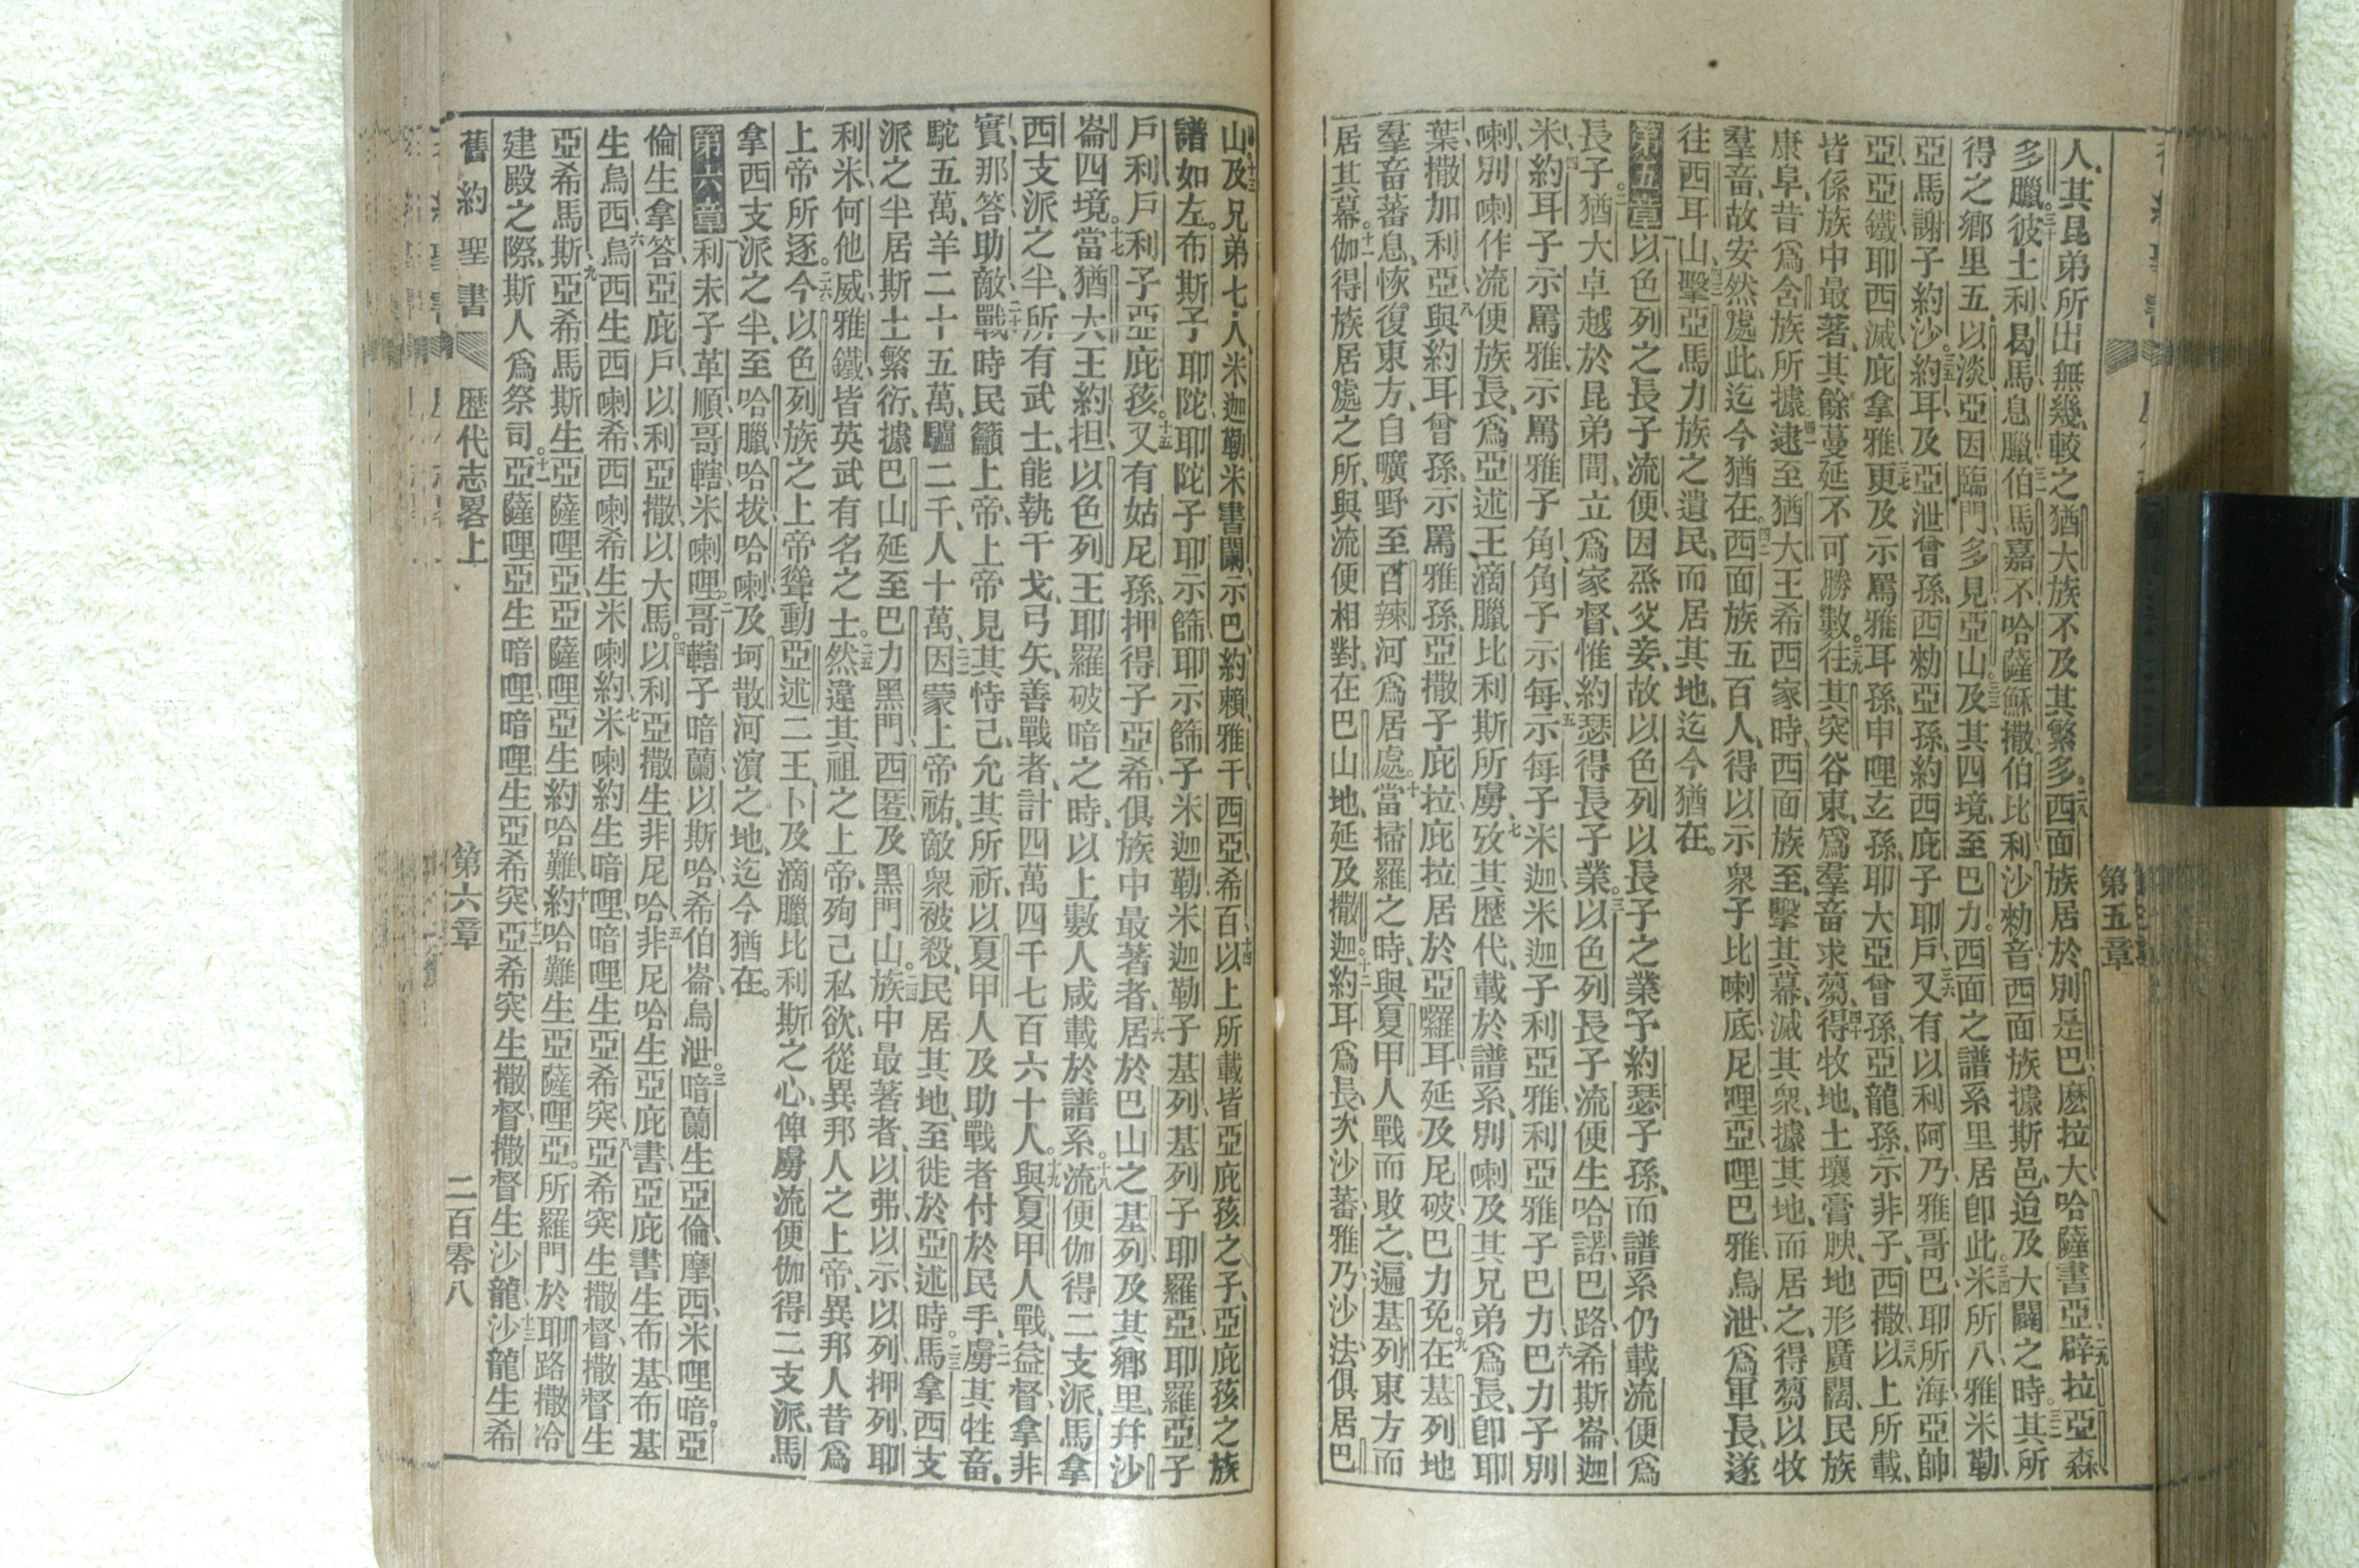 人其昆弟所出無幾較之猶大族不及其繁多西面族居於別是巴麽拉大哈薩書亞辟拉亞森
多臘彼土利曷馬息臘伯馬嘉不哈薩穌撒伯比利沙勑音西面族據斯邑迨及大闢之時其所
得之鄉里五以淡亞因臨門多見亞山及其四境至巴力西面之譜系里居卽此米所八雅米勒
亞馬謝子約沙約耳及亞泄曾孫西勑亞孫約西庇子耶戶又有以利阿乃雅哥巴耶所海亞帥
亞亞鐵耶西滅庇拿雅更及示罵雅耳孫申哩玄孫耶大亞曾孫亞龍孫示非子西撒以上所載
皆係族中最著其餘蔓延不可勝數往其突谷東爲羣畜求芻得牧地土壤膏腴地形廣闊民族
康阜昔爲含族所據逮至猶大王希西家時西面族至擊其幕滅其衆據其地而居之得芻以牧
羣畜故安然處此迄今猶在西面族五百人得以示衆子比喇底尼哩亞哩巴雅烏泄爲軍長遂
往西耳山擊亞馬力族之遺民而居其地迄今猶在
第五章以色列之長子流便因烝父妾故以色列以長子之業予約瑟子孫而譜系仍載流便爲
長子猶大卓越於昆弟間立爲家督惟約瑟得長子業以色列長子流便生哈諾巴路希斯崙迦
米約耳子示罵雅示罵雅子角角子示每示每子米迦米迦子利亞雅利亞雅子巴力巴力子別
喇別喇作流便族長爲亞述王滴臘比利斯所虜攷其歷代載於譜系別喇及其兄弟爲長卽耶
葉撒加利亞與約耳曾孫示罵雅孫亞撒子庇拉庇拉居於亞囉耳延及尼破巴力免在基列地
羣畜蕃息恢復東方自曠野至百辣河爲居處當掃羅之時與夏甲人戰而敗之遍基列東方而
居其幕伽得族居處之所與流便相對在巴山地延及撒迦約耳爲長次沙蕃雅乃沙法俱居巴
第五章
山及兄弟七人米迦勒米書闌示巴約賴雅干西亞希百以上所載皆亞庇孩之子亞庇孩之族
譜如左布斯子耶陀耶陀子耶示篩耶示篩子米迦勒米迦勒子基列基列子耶羅亞耶羅亞子
戶利戶利子亞庇孩又有姑尼孫押得子亞希俱族中最著者居於巴山之基列及其鄉里幷沙
崙四境當猶大王約担以色列王耶羅破暗之時以上數人咸載於譜系流便伽得二支派馬拿
西支派之半所有武士能執干戈弓矢善戰者計四萬四千七百六十人與夏甲人戰益督拿非
實那答助敵戰時民籲上帝上帝見其恃己允其所祈以夏甲人及助戰者付於民手虜其牲畜
駝五萬羊二十五萬驢二千人十萬因蒙上帝祐敵衆被殺民居其地至徙於亞述時馬拿西支
派之半居斯土繁衍據巴山延至巴力黑門西匿及黑門山族中最著者以弗以示以列押列耶
利米何他威雅鐵皆英武有名之士然違其祖之上帝殉己私欲從異邦人之上帝異邦人昔爲
上帝所逐今以色列族之上帝聳動亞述二王卜及滴臘比利斯之心俾虜流便伽得二支派馬
拿西支派之半至哈臘哈拔哈喇及坷散河濱之地迄今猶在
第六章利未子革順哥轄米喇哩哥轄子暗蘭以斯哈希伯崙烏泄暗蘭生亞倫摩西米哩暗亞
倫生拿答亞庇戶以利亞撒以大馬以利亞撒生非尼哈非尼哈生亞庇書亞庇書生布基布基
生烏西烏西生西喇希西喇希生米喇約米喇約生暗哩暗哩生亞希突亞希突生撒督撒督生
亞希馬斯亞希馬斯生亞薩哩亞亞薩哩亞生約哈難約哈難生亞薩哩亞所羅門於耶路撒冷
建殿之際斯人爲祭司亞薩哩亞生暗哩暗哩生亞希突亞希突生撒督撒督生沙龍沙龍生希
舊約聖書 歷代志畧上 第六章 二百零八